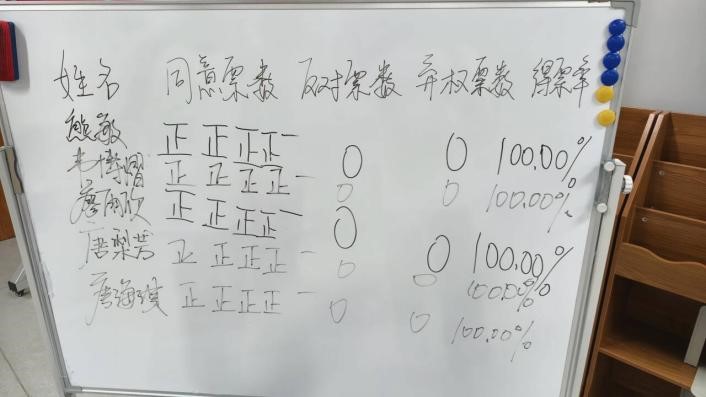 姓名 同意票数 反对票数 弃权票数 得票率
熊敏 正正正正一 0 0 100.00%
正正正正一 0 0 100.00%
正正正正一 0 0 100.00%
唐梨芳 正正正正一 0 0 100.00%
唐海琪 正正正正一 0 0 100.00%